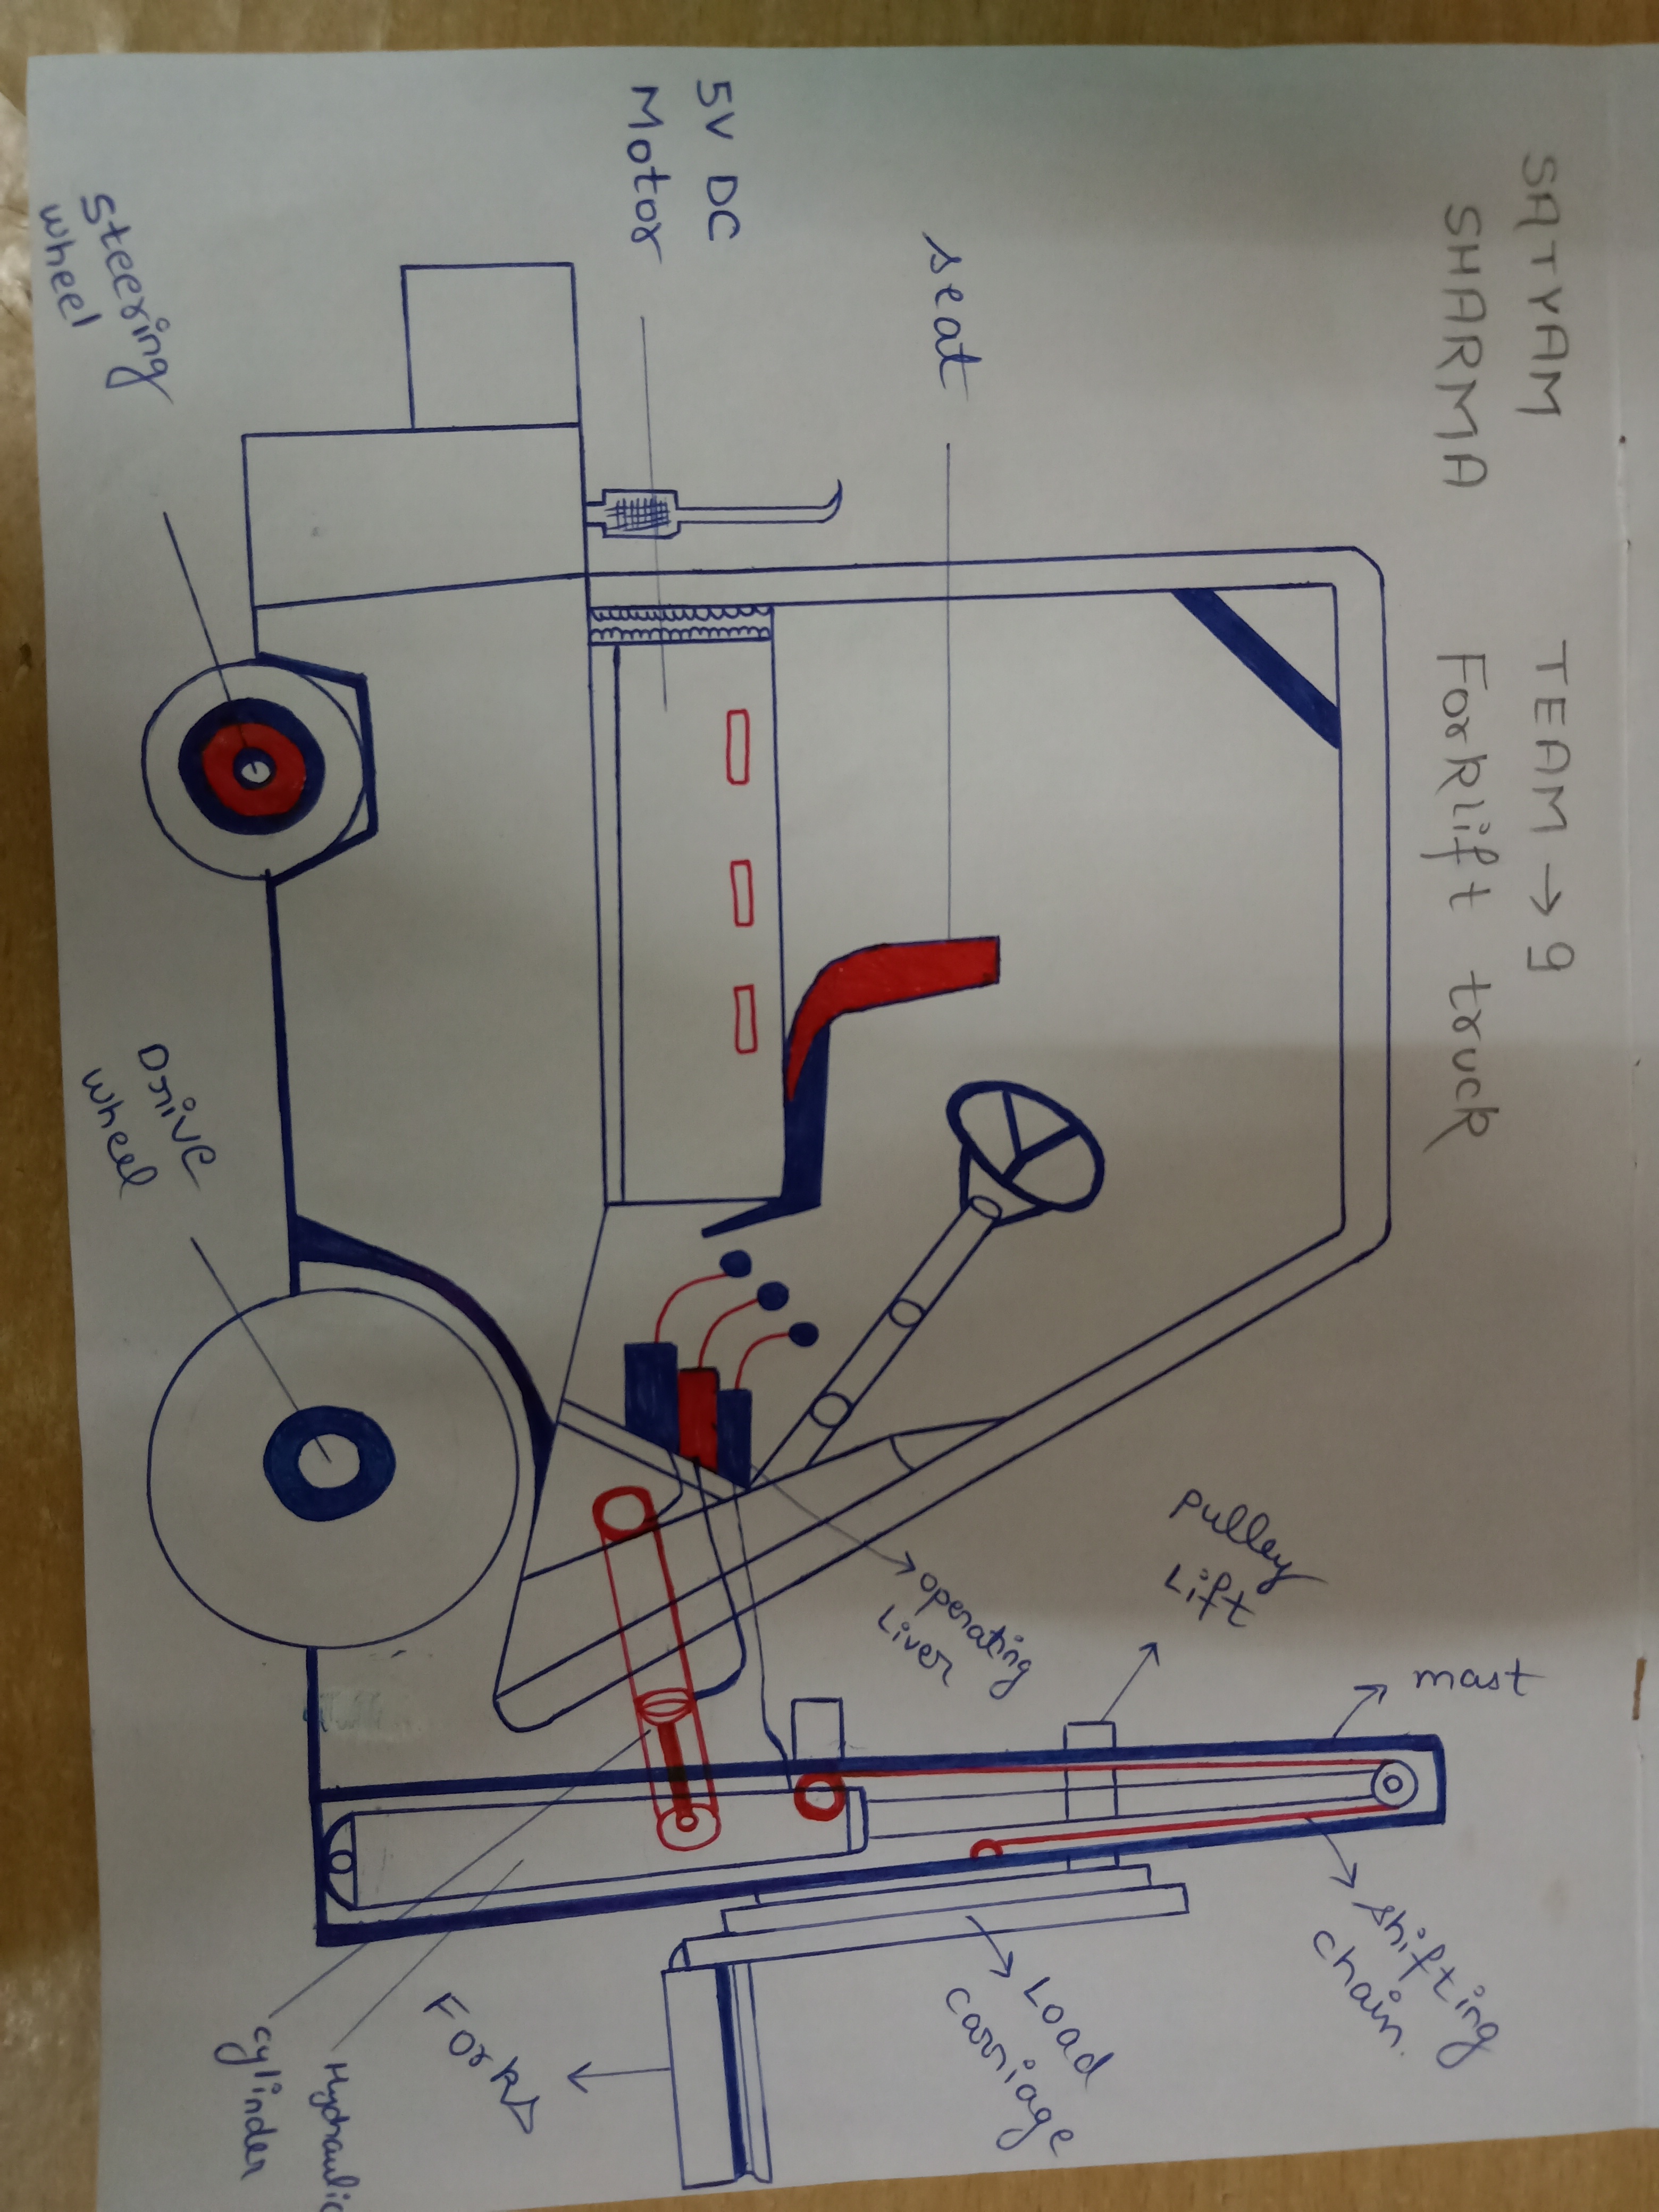 SATYAM
SHARMA
TEAM → 9
Forklift truck
mast
shifting
chain.
Pulley
Lift
Load
carriage
operating
Liver
seat
5V DC
Motor
Forks
Hydraulic
cylinder
Drive
wheel
steering
wheel